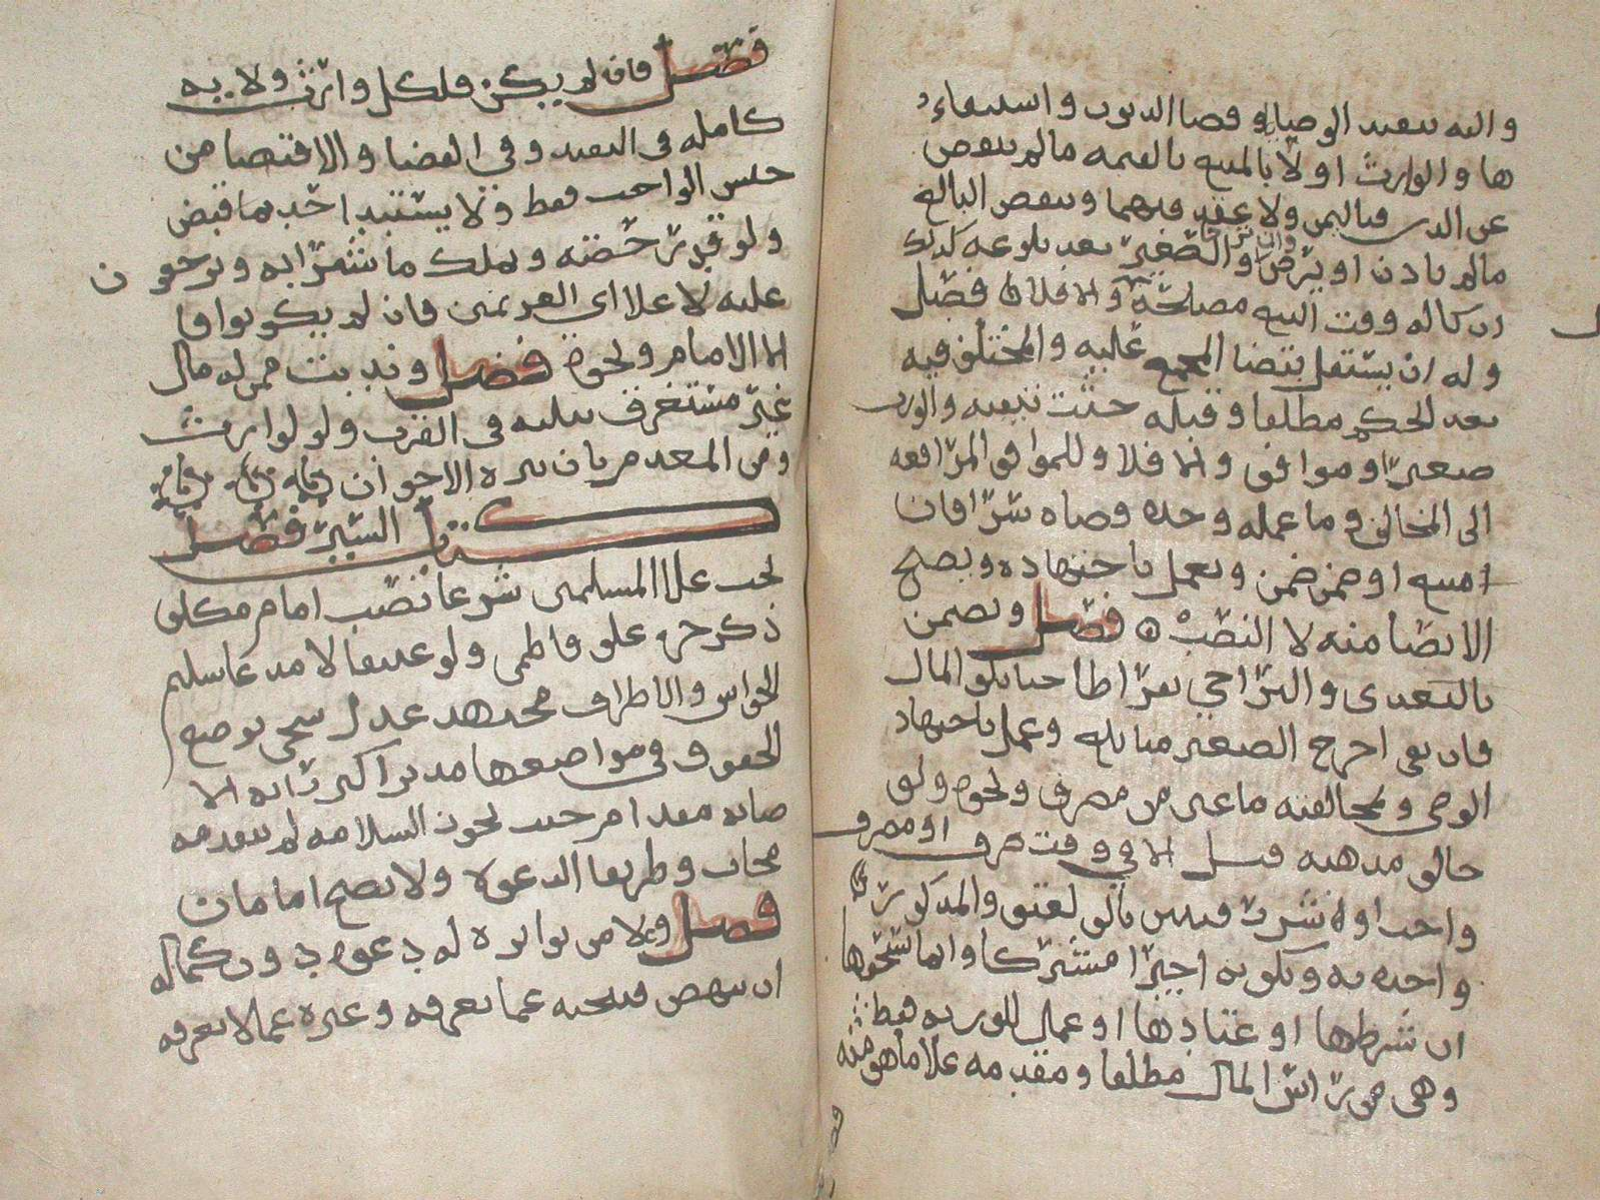 واليه تنفيد الوصيا وقضا الديون واستيفاء
ها والوارث اولا بالمبيع بالقيمه مالم تنقص
عن الدين فبالثمن ولا عقد فيهما وينقص البالغ
مالم يادن او يرض والصغير بعد بلوغه كدلك
ان كان له وقت البيع مصلحة والا فلا فصل
وله ان يستقل بقضا المجمع عليه والمختلف فيه
بعد الحكم مطلقا وقبله حيث تيقنه والورث
صغيرا وموافق والا فلا وللموافق المرافعه
الى المخالف وما علمه وحده قضاه سرا فان
منع او ضمن ضمن ويعمل باجتهاده ويصح
الايصا منه لا النصب فصل ويضمن
بالتعدى والتراخي تفرايطا حتى تلف المال
فان بقى اخرج الصغير متى بلغ وعمل باجتهاد
الوصى وبمخالفته ما عين من مصرف ونحوه ولو
خالف مدهبه قيل الا في وقت صرف او مصرف
واحد او شرى بالف لعتق والمدكور
واحده به وبكونه اجيرا مشتركا وانما يستحقها
ان شرطها او عتادها او عمل للورثه فقط
وهي من راس المال مطلقا ومقدمه علا ما هو منه
فصل فان لم يكن فلكل وارث ولايه
كامله في التنفيد وفي القضا والاقتضا من
جنس الواحب فقط ولا يستبد احد بما قبض
ولو قدر حصته ويملك ما شرا به ويرجعون
عليه لا علا اي الغريمين فان لم يكونوا فا
لا الامام ونحوه فصل وندبت ممن له مال
غير مستغرق بثلثه في القرب ولو لوارث
ومن المعدم بان يبره الاخوان
كتاب السير فصل
يجب علا المسلمين شرعا نصب امام مكلف
ذكر حر علوي فاطمي ولو عتيقا لا مدعا سليم
الحواس والاطراف مجتهد عدل سخي بوضع
الحقوق في مواضعها مدبر اكثر رايه الا
صابه مقدام حيث يجوز السلامه لم يتقدمه
مجاب وطريقها الدعوة ولا يصح امامان
فصل وعلا من تواترت له دعوه دون كماله
ان ينهض فيبحثه عما يعرفه وغيره عما لا يعرفه